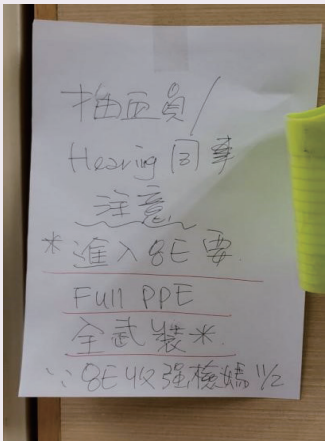 抽血員/
Hearing 同事
注意
*進入8E要
Full PPE
全武裝*
∵8E收强檢媽 11/2